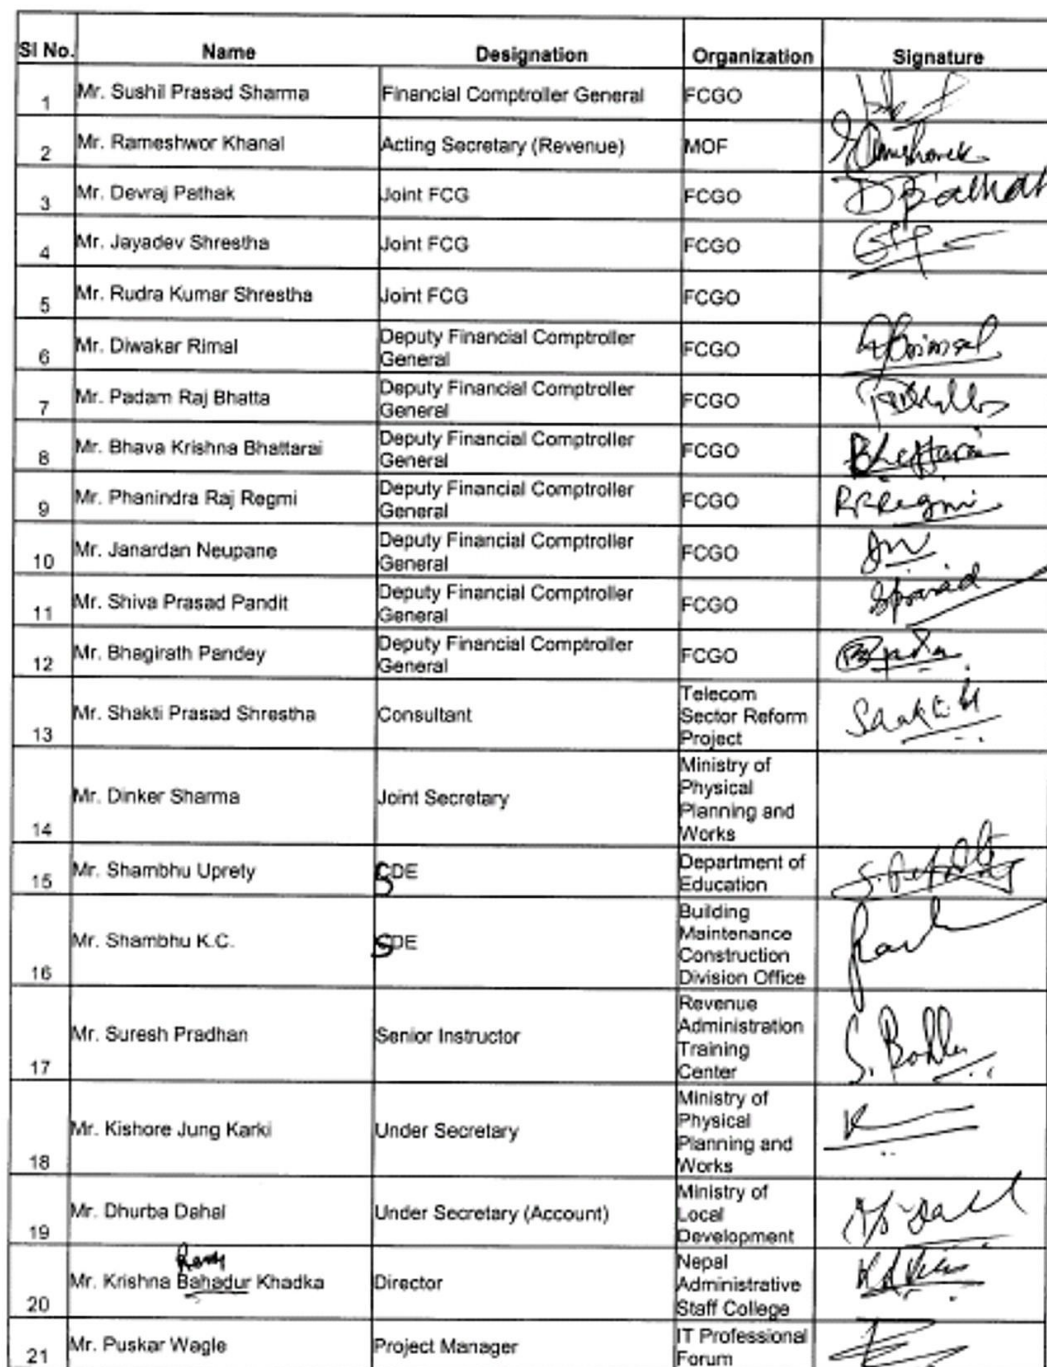 SI No. Name Designation Organization Signature
1 Mr. Sushil Prasad Sharma Financial Comptroller General FCGO
2 Mr. Rameshwor Khanal Acting Secretary (Revenue) MOF
3 Mr. Devraj Pathak Joint FCG FCGO DPathak
4 Mr. Jayadev Shrestha Joint FCG FCGO
5 Mr. Rudra Kumar Shrestha Joint FCG FCGO
6 Mr. Diwakar Rimal Deputy Financial Comptroller
General FCGO
7 Mr. Padam Raj Bhatta Deputy Financial Comptroller
General FCGO
8 Mr. Bhava Krishna Bhattarai Deputy Financial Comptroller
General FCGO
9 Mr. Phanindra Raj Regmi Deputy Financial Comptroller
General FCGO
10 Mr. Janardan Neupane Deputy Financial Comptroller
General FCGO
11 Mr. Shiva Prasad Pandit Deputy Financial Comptroller
General FCGO
12 Mr. Bhagirath Pandey Deputy Financial Comptroller
General FCGO
13 Mr. Shakti Prasad Shrestha Consultant Telecom
Sector Reform
Project
14 Mr. Dinker Sharma Joint Secretary Ministry of
Physical
Planning and
Works
15 Mr. Shambhu Uprety SDE Department of
Education
16 Mr. Shambhu K.C. SDE Building
Maintenance
Construction
Division Office
17 Mr. Suresh Pradhan Senior Instructor Revenue
Administration
Training
Center
18 Mr. Kishore Jung Karki Under Secretary Ministry of
Physical
Planning and
Works
19 Mr. Dhurba Dahal Under Secretary (Account) Ministry of
Local
Development
20 Mr. Krishna Bahadur Khadka Director Nepal
Administrative
Staff College
21 Mr. Puskar Wagle Project Manager IT Professional
Forum